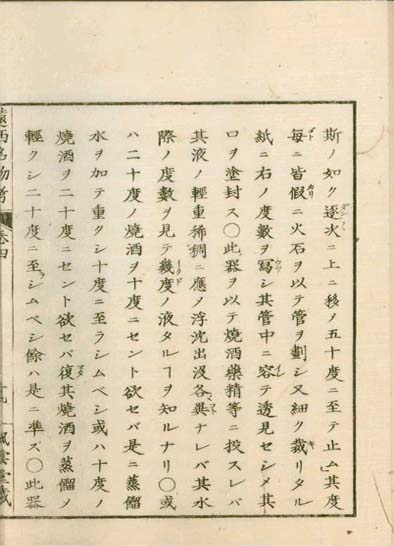 斯ノ如ク逐次ニ上ニ移メ五十度ニ至テ止ム其度
毎ニ皆假ニ火石ヲ以テ管ヲ劃シ又細ク裁リタル
紙ニ右ノ度數ヲ寫シ其管中ニ容テ透見セシメ其
口ヲ塗封ス〇此器ヲ以テ燒酒藥精等ニ投スレバ
其液ノ輕重稀稠ニ應メ浮沈出没各異ナレバ其水
際ノ度數ヲ見テ幾度ノ液タルヿヲ知ルナリ〇或
ハ二十度ノ燒酒ヲ十度ニセント欲セバ是ニ蒸餾
水ヲ加テ重クシ十度ニ至ラシムベシ或ハ十度ノ
燒酒ヲ二十度ニセント欲セバ復其燒酒ヲ蒸餾メ
輕クシ二十度ニ至ラシムベシ餘ハ是ニ準ズ〇此器
遠西名物考 卷四 風雲堂藏